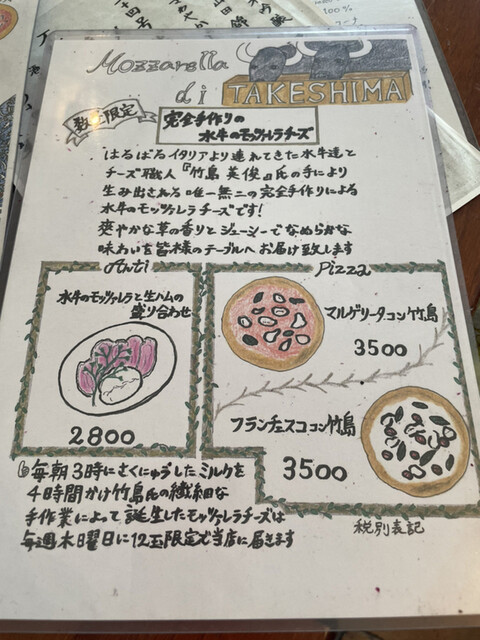 Mozzarella
di TAKESHIMA
数量限定
完全手作りの
水牛のモッツァレラチーズ
はるばるイタリアより連れてきた水牛達と
チーズ職人『竹島 英俊』氏の手により
生み出される唯一無二の完全手作りによる
水牛のモッツァレラチーズです!
爽やかな草の香りとジューシーでなめらかな
味わいを皆様のテーブルへお届け致します
Anti
水牛のモッツァレラと生ハムの
盛り合わせ
2800
Pizza
マルゲリータコン竹島
3500
フランチェスココン竹島
3500
税別表記
毎朝3時にさくにゅうしたミルクを
4時間かけ竹島氏の繊細な
手作業によって誕生したモッツァレラチーズは
毎週木曜日に12玉限定で当店に届きます